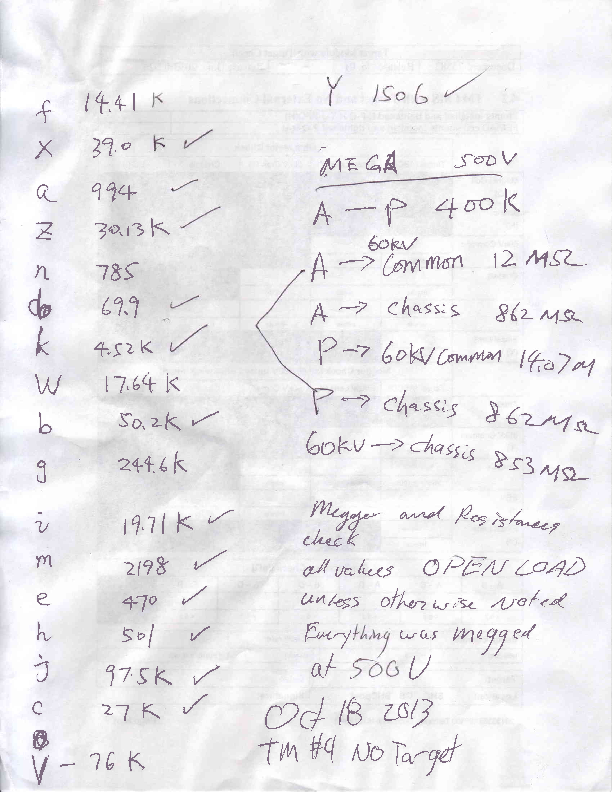 f 14.41 K
X 39.0 K ✓
a 994 ✓
Z 30.13 K ✓
n 785
d 69.9 ✓
k 4.52 K ✓
W 17.64 K
b 50.2 K ✓
g 244.6 K
i 19.71 K ✓
m 2198 ✓
e 470 ✓
h 501 ✓
j 97.5 K ✓
c 27 K ✓
V - 76 K
Y 1506 ✓
MEGA 500V
A — P 400 K
A → 60KV Common 12 MΩ
A → chassis 862 MΩ
P → 60KV Common 14.07 M
P → chassis 862 MΩ
60KV → chassis 853 MΩ
Megger and Resistances
check
all values OPEN LOAD
unless otherwise Noted
Everything was megged
at 500V
Oct 18 2013
TM #9 No Target